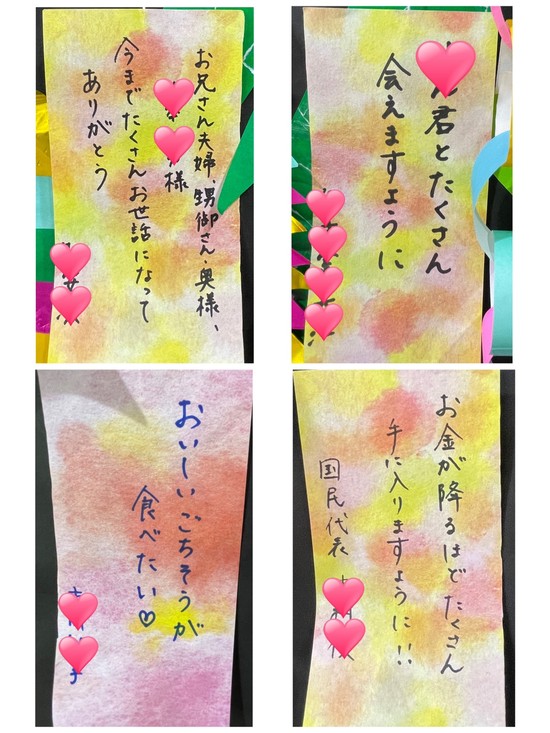 お兄さん夫婦、甥御さん・奥様、
様
今までたくさんお世話になって
ありがとう
君とたくさん
会えますように
おいしいごちそうが
食べたい♡
お金が降るほどたくさん
手に入りますように!!
国民代表